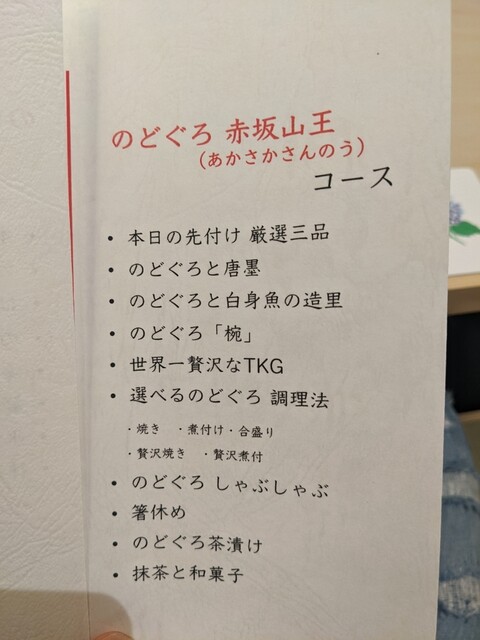 のどぐろ 赤坂山王
(あかさかさんのう)
コース
・本日の先付け 厳選三品
・のどぐろと唐墨
・のどぐろと白身魚の造里
・のどぐろ「椀」
・世界一贅沢なTKG
・選べるのどぐろ 調理法
・焼き ・煮付け・合盛り
・贅沢焼き ・贅沢煮付
・のどぐろ しゃぶしゃぶ
・箸休め
・のどぐろ茶漬け
・抹茶と和菓子